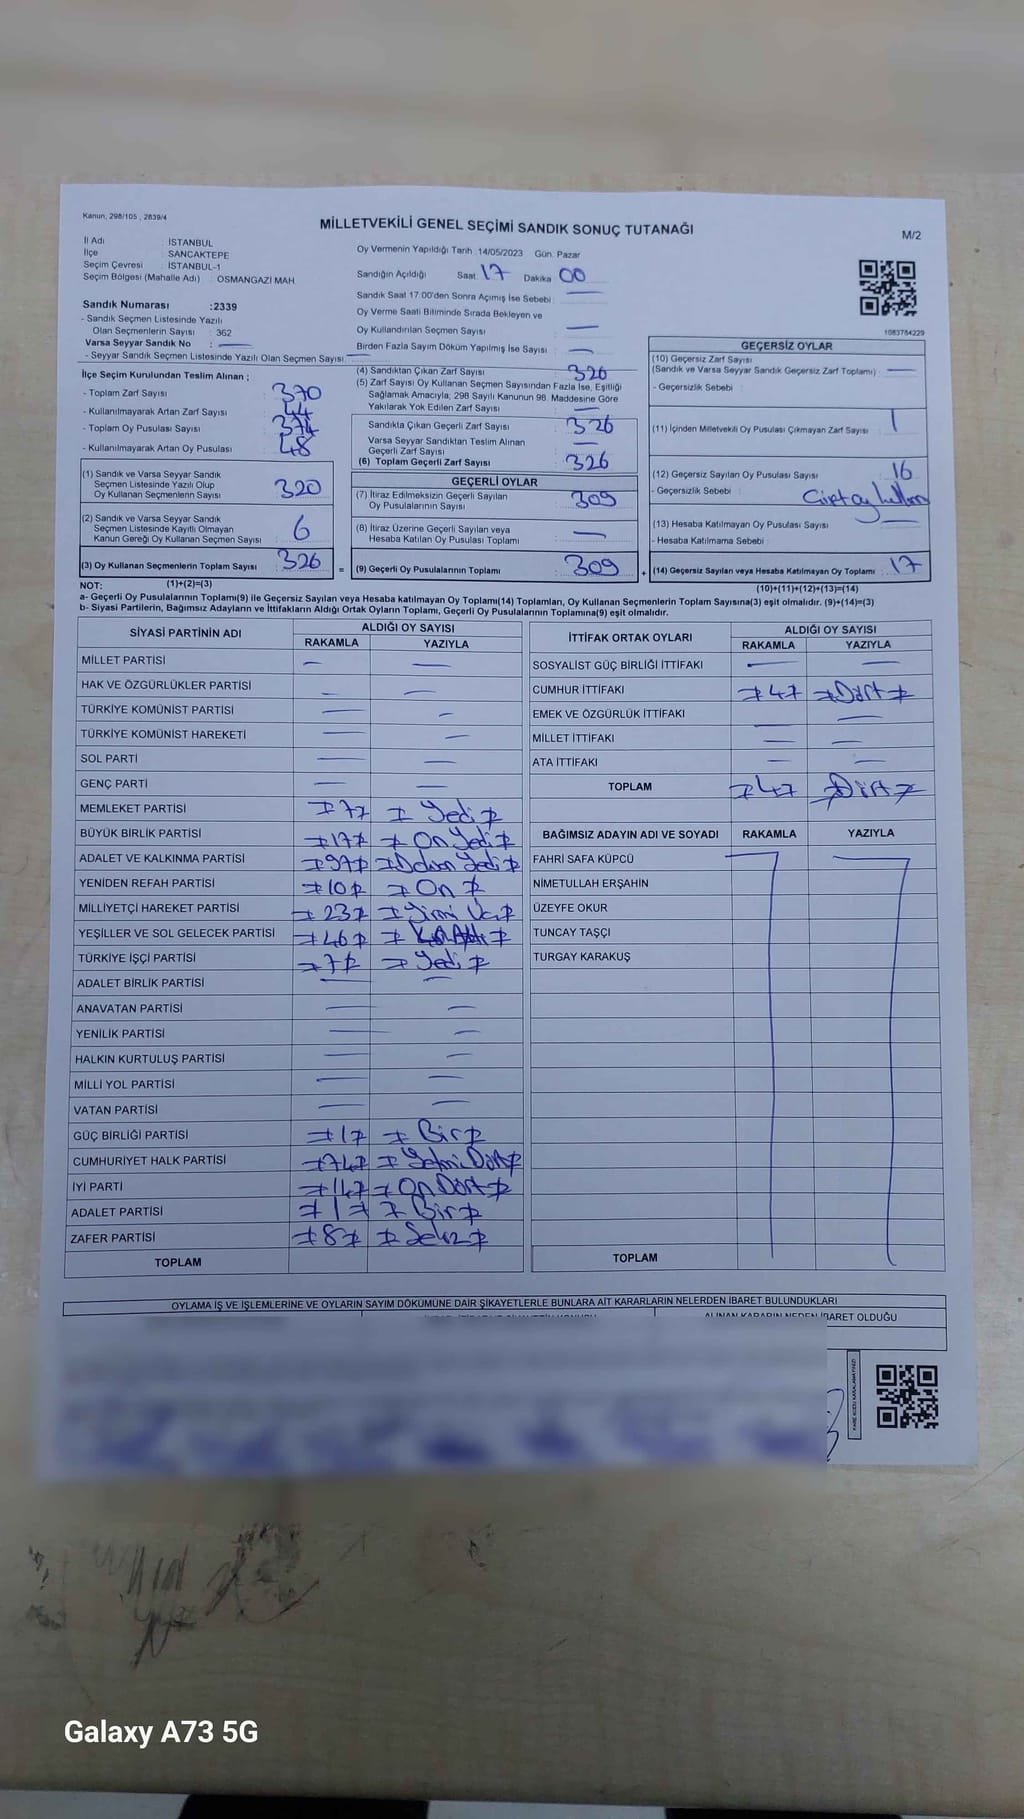 Kanun, 298/105 , 2839/4
MİLLETVEKİLİ GENEL SEÇİMİ SANDIK SONUÇ TUTANAĞI
M/2
İl Adı : İSTANBUL
İlçe : SANCAKTEPE
Seçim Çevresi : İSTANBUL-1
Seçim Bölgesi (Mahalle Adı) : OSMANGAZİ MAH
Oy Vermenin Yapıldığı Tarih : 14/05/2023 Gün: Pazar
Sandığın Açıldığı Saat: 17 Dakika 00
Sandık Saat 17:00'den Sonra Açımış İse Sebebi : —
Oy Verme Saati Bitiminde Sırada Bekleyen ve
Oy Kullandırılan Seçmen Sayısı : —
Birden Fazla Sayım Döküm Yapılmış İse Sayısı : —
1083784229
Sandık Numarası : 2339
- Sandık Seçmen Listesinde Yazılı
Olan Seçmenlerin Sayısı : 362
Varsa Seyyar Sandık No : —
- Seyyar Sandık Seçmen Listesinde Yazılı Olan Seçmen Sayısı: —
İlçe Seçim Kurulundan Teslim Alınan ;
- Toplam Zarf Sayısı : 370
- Kullanılmayarak Artan Zarf Sayısı : 44
- Toplam Oy Pusulası Sayısı : 374
- Kullanılmayarak Artan Oy Pusulası : 48
(1) Sandık ve Varsa Seyyar Sandık
Seçmen Listesinde Yazılı Olup
Oy Kullanan Seçmenlerin Sayısı : 320
(2) Sandık ve Varsa Seyyar Sandık
Seçmen Listesinde Kayıtlı Olmayan
Kanun Gereği Oy Kullanan Seçmen Sayısı : 6
(3) Oy Kullanan Seçmenlerin Toplam Sayısı : 326
(4) Sandıktan Çıkan Zarf Sayısı : 326
(5) Zarf Sayısı Oy Kullanan Seçmen Sayısından Fazla İse, Eşitliği
Sağlamak Amacıyla; 298 Sayılı Kanunun 98. Maddesine Göre
Yakılarak Yok Edilen Zarf Sayısı : —
Sandıkta Çıkan Geçerli Zarf Sayısı : 326
Varsa Seyyar Sandıktan Teslim Alınan
Geçerli Zarf Sayısı : —
(6) Toplam Geçerli Zarf Sayısı : 326
GEÇERLİ OYLAR
(7) İtiraz Edilmeksizin Geçerli Sayılan
Oy Pusulalarının Sayısı : 309
(8) İtiraz Üzerine Geçerli Sayılan veya
Hesaba Katılan Oy Pusulası Toplamı : —
= (9) Geçerli Oy Pusulalarının Toplamı : 309
GEÇERSİZ OYLAR
(10) Geçersiz Zarf Sayısı
(Sandık ve Varsa Seyyar Sandık Geçersiz Zarf Toplamı) : —
- Geçersizlik Sebebi :
(11) İçinden Milletvekili Oy Pusulası Çıkmayan Zarf Sayısı : 1
(12) Geçersiz Sayılan Oy Pusulası Sayısı : 16
- Geçersizlik Sebebi :
(13) Hesaba Katılmayan Oy Pusulası Sayısı : —
- Hesaba Katılmama Sebebi :
+ (14) Geçersiz Sayılan veya Hesaba Katılmayan Oy Toplamı : 17
NOT: (1)+(2)=(3) (10)+(11)+(12)+(13)=(14)
a- Geçerli Oy Pusulalarının Toplamı(9) ile Geçersiz Sayılan veya Hesaba katılmayan Oy Toplamı(14) Toplamları, Oy Kullanan Seçmenlerin Toplam Sayısına(3) eşit olmalıdır. (9)+(14)=(3)
b- Siyasi Partilerin, Bağımsız Adayların ve İttifakların Aldığı Ortak Oyların Toplamı, Geçerli Oy Pusulalarının Toplamına(9) eşit olmalıdır.
SİYASİ PARTİNİN ADI ALDIĞI OY SAYISI
RAKAMLA YAZIYLA
MİLLET PARTİSİ — —
HAK VE ÖZGÜRLÜKLER PARTİSİ — —
TÜRKİYE KOMÜNİST PARTİSİ — —
TÜRKİYE KOMÜNİST HAREKETİ — —
SOL PARTİ — —
GENÇ PARTİ — —
MEMLEKET PARTİSİ ≠7≠ ≠ Yedi ≠
BÜYÜK BİRLİK PARTİSİ ≠17≠ ≠ On Yedi ≠
ADALET VE KALKINMA PARTİSİ ≠97≠ ≠ Doksan Yedi ≠
YENİDEN REFAH PARTİSİ ≠10≠ ≠ On ≠
MİLLİYETÇİ HAREKET PARTİSİ ≠23≠ ≠ Yirmi Üç ≠
YEŞİLLER VE SOL GELECEK PARTİSİ ≠46≠ ≠ Kırk Altı ≠
TÜRKİYE İŞÇİ PARTİSİ ≠7≠ ≠ Yedi ≠
ADALET BİRLİK PARTİSİ — —
ANAVATAN PARTİSİ — —
YENİLİK PARTİSİ — —
HALKIN KURTULUŞ PARTİSİ — —
MİLLİ YOL PARTİSİ — —
VATAN PARTİSİ — —
GÜÇ BİRLİĞİ PARTİSİ ≠1≠ ≠ Bir ≠
CUMHURİYET HALK PARTİSİ ≠74≠ ≠ Yetmiş Dört ≠
İYİ PARTİ ≠14≠ ≠ On Dört ≠
ADALET PARTİSİ ≠1≠ ≠ Bir ≠
ZAFER PARTİSİ ≠8≠ ≠ Sekiz ≠
TOPLAM
İTTİFAK ORTAK OYLARI ALDIĞI OY SAYISI
RAKAMLA YAZIYLA
SOSYALİST GÜÇ BİRLİĞİ İTTİFAKI — —
CUMHUR İTTİFAKI ≠4≠ ≠ Dört ≠
EMEK VE ÖZGÜRLÜK İTTİFAKI — —
MİLLET İTTİFAKI — —
ATA İTTİFAKI — —
TOPLAM ≠4≠ ≠ Dört ≠
BAĞIMSIZ ADAYIN ADI VE SOYADI RAKAMLA YAZIYLA
FAHRİ SAFA KÜPCÜ
NİMETULLAH ERŞAHİN
ÜZEYFE OKUR
TUNCAY TAŞÇI
TURGAY KARAKUŞ
TOPLAM
OYLAMA İŞ VE İŞLEMLERİNE VE OYLARIN SAYIM DÖKÜMÜNE DAİR ŞİKAYETLERLE BUNLARA AİT KARARLARIN NELERDEN İBARET BULUNDUKLARI
ALINAN KARARIN NEDEN İBARET OLDUĞU
Galaxy A73 5G